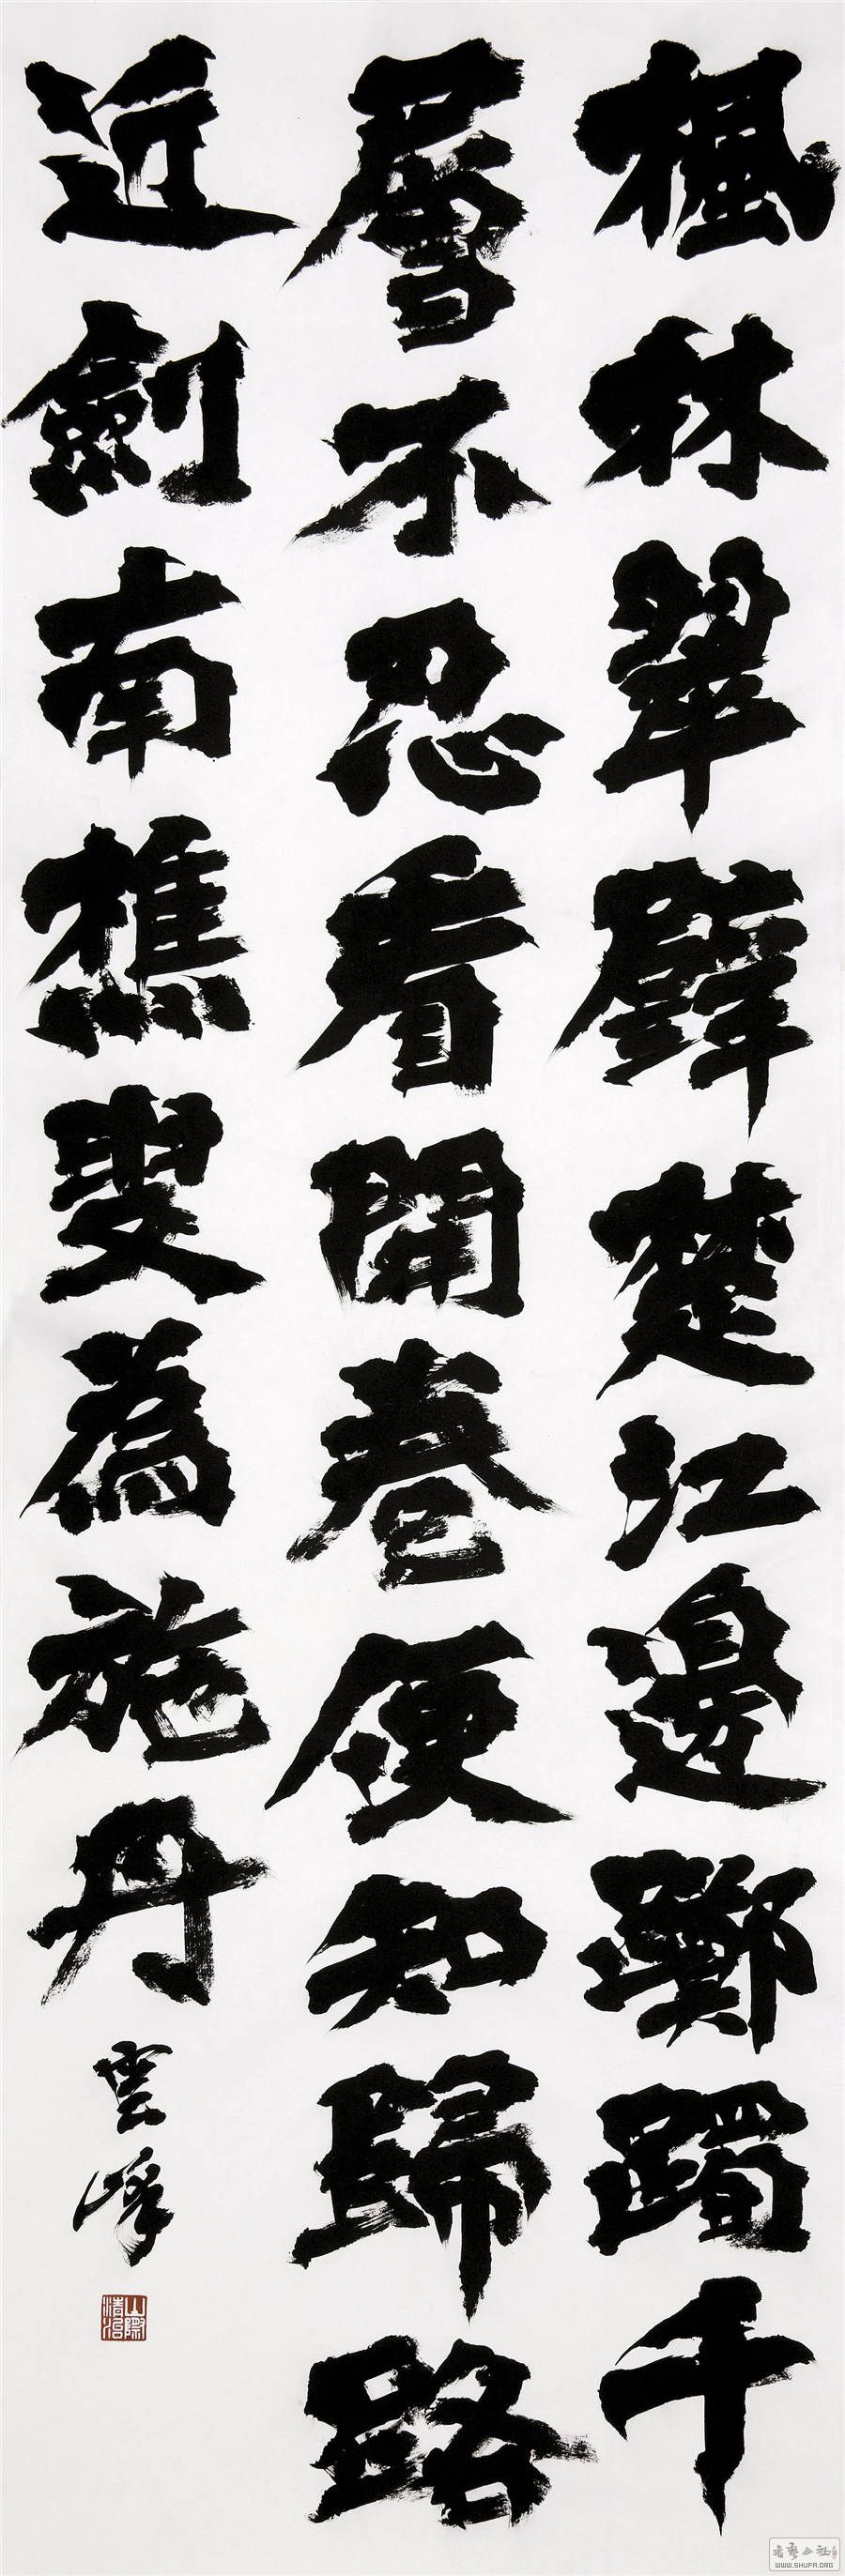 楓林翠壁楚江邊躑躅千
層不忍看開卷便知歸路
近劍南樵叟為施丹
雲峰
書藝公社
WWW.SHUFA.ORG